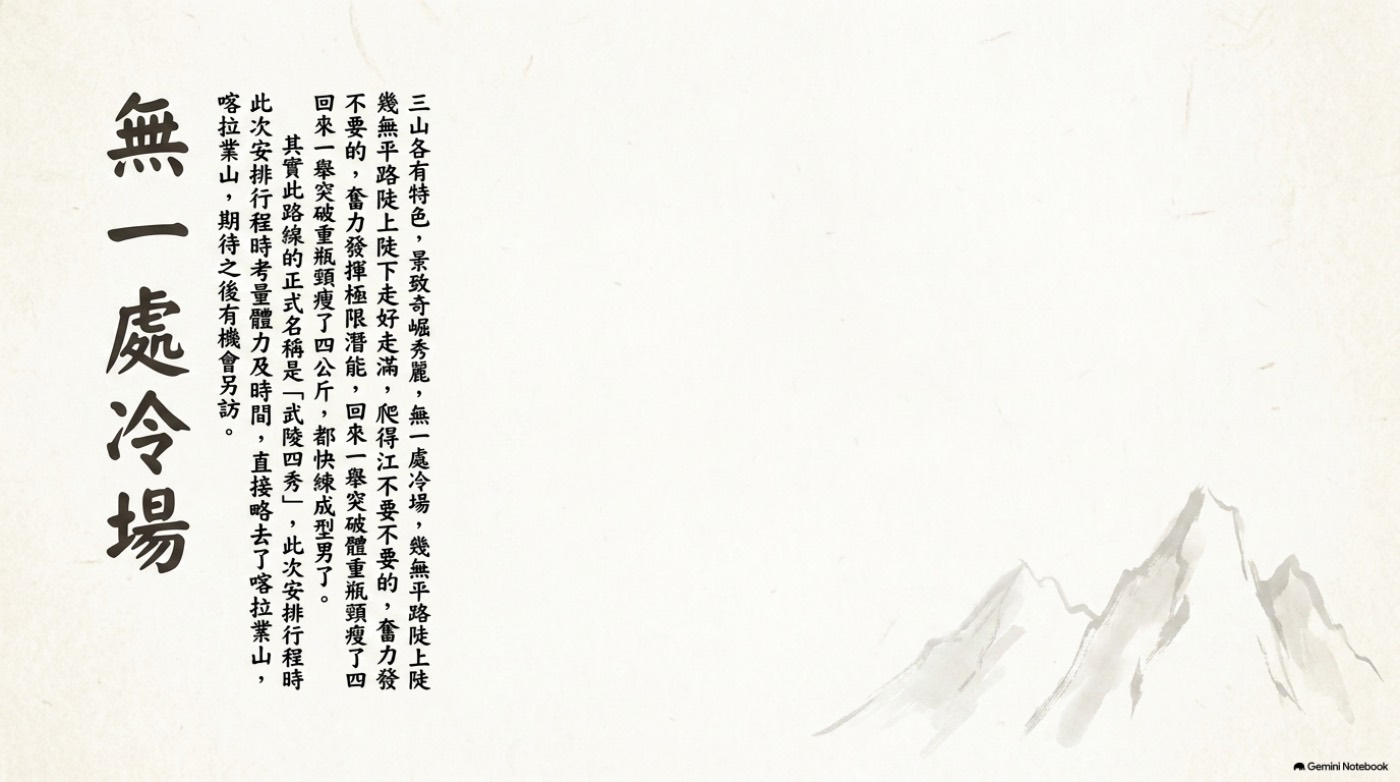 三山各有特色，景致奇崛秀麗，無一處冷場，幾無平路陡上陡
幾無平路陡上陡下走好走滿，爬得江不要不要的，奮力發
不要的，奮力發揮極限潛能，回來一舉突破體重瓶頸瘦了四
回來一舉突破重瓶頸瘦了四公斤，都快練成型男了。
其實此路線的正式名稱是「武陵四秀」，此次安排行程時
此次安排行程時考量體力及時間，直接略去了喀拉業山，
喀拉業山，期待之後有機會另訪。
無一處冷場
Gemini Notebook